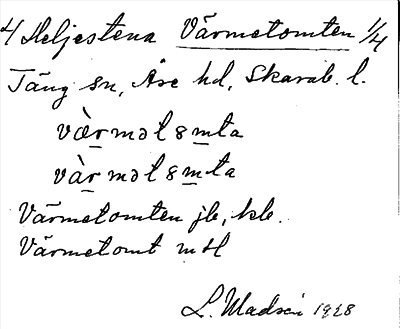 4 Heljestena Värmetomten 1/4
Täng sn, Åse hd, Skarab. l.
væ̀rmətɞmta
và̀rmətɞmta
Värmetomten jb, kb.
Värmetomt mtl
L. Madsén 1928